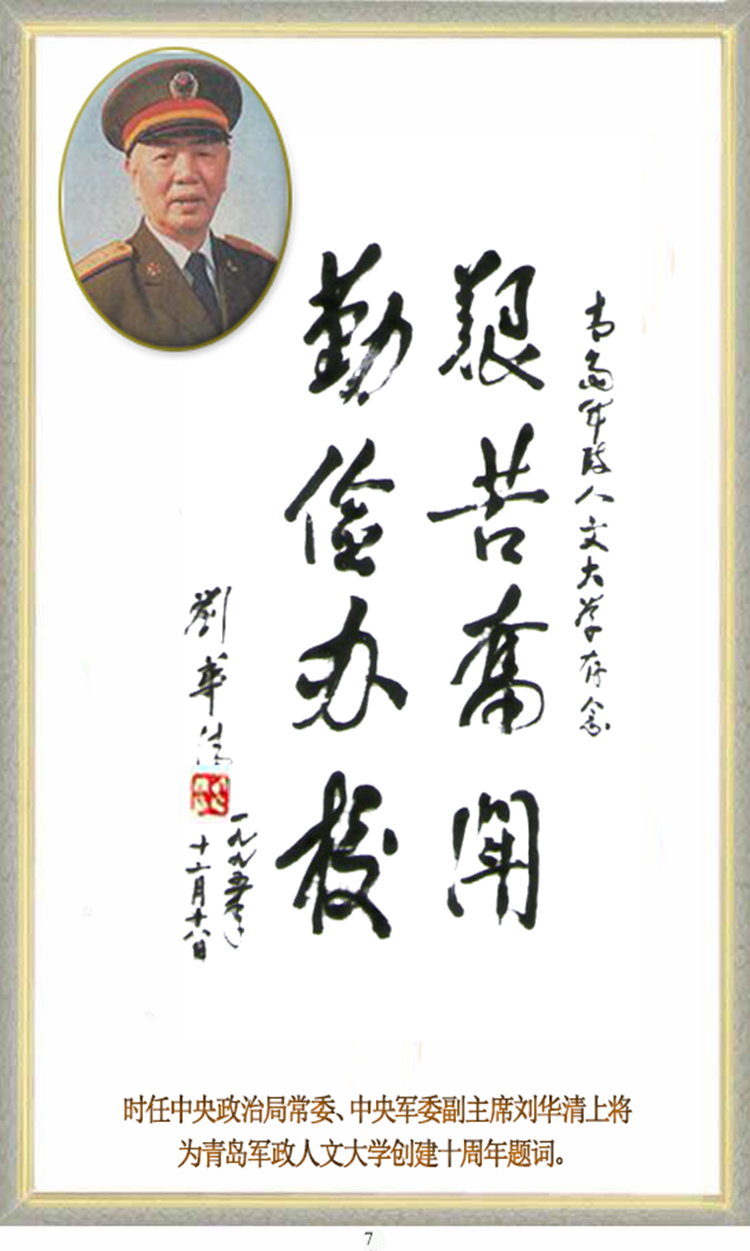 青岛军政人文大学存念
艰苦奋闘
勤俭办校
劉华清
一九九五年
十二月十八日
时任中央政治局常委、中央军委副主席刘华清上将
为青岛军政人文大学创建十周年题词。
7